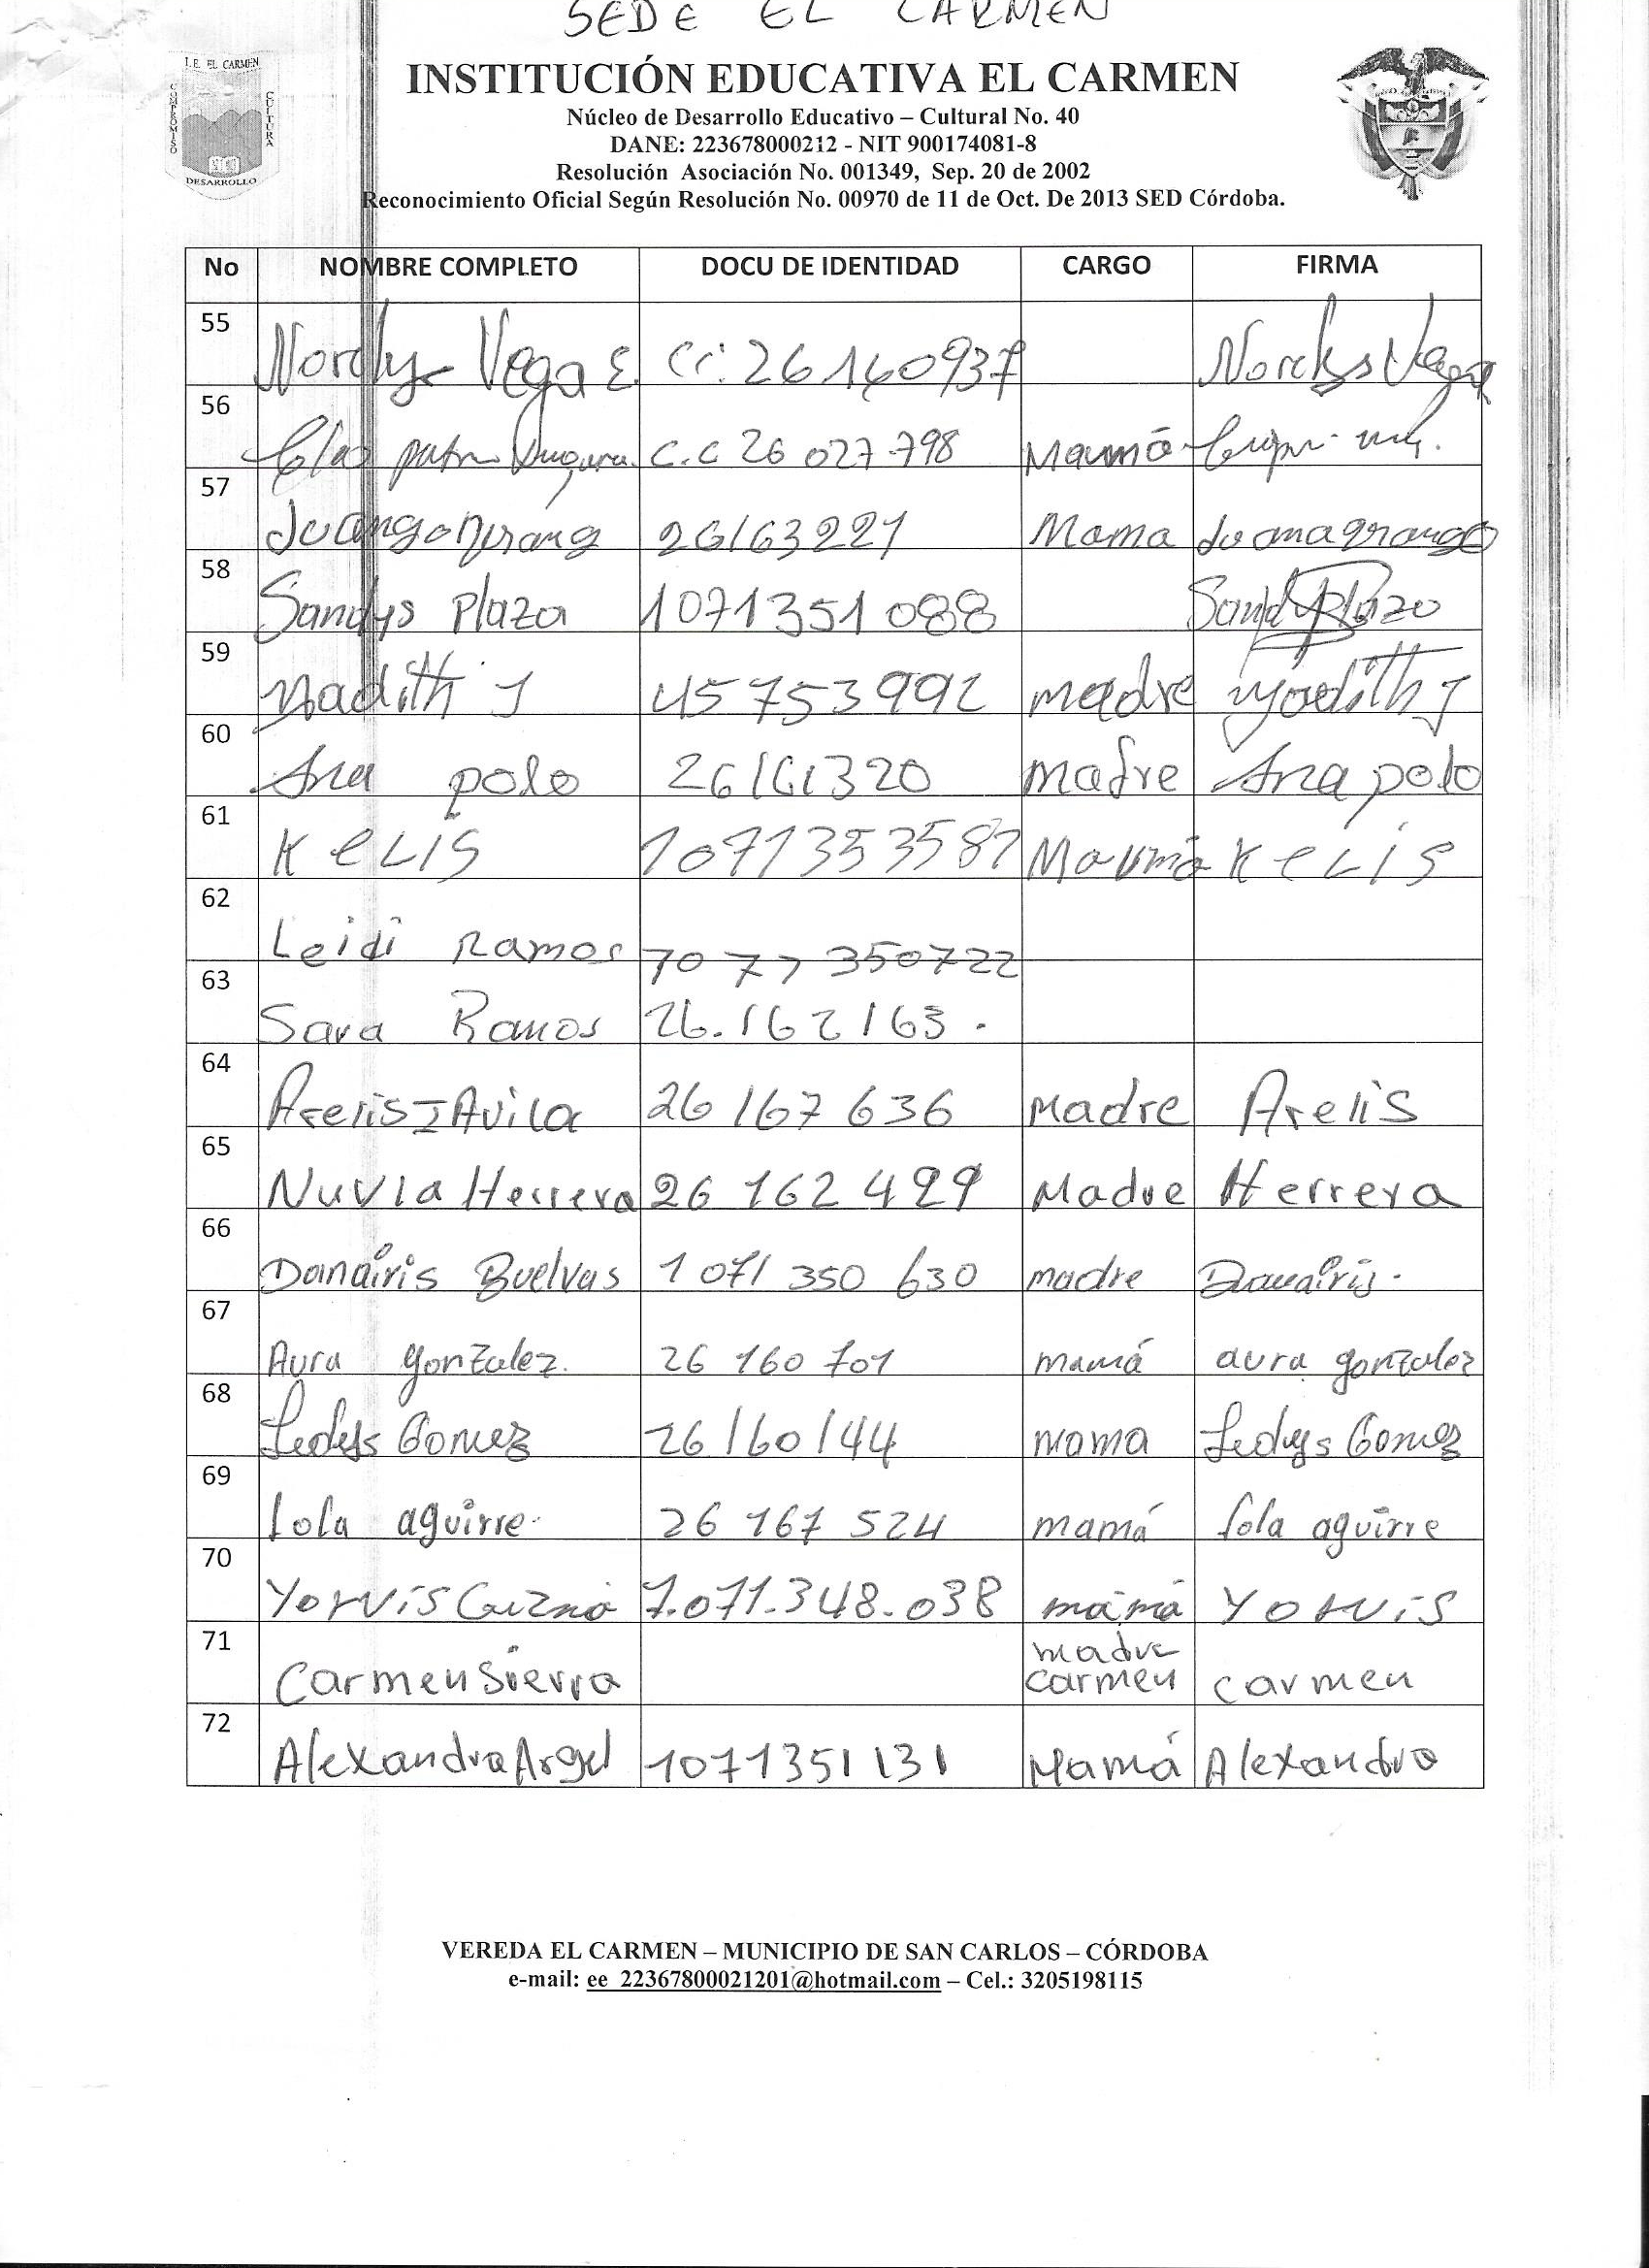 SEDE EL CARMEN
I.E. EL CARMEN
COMPROMISO
CULTURA
DESARROLLO
INSTITUCIÓN EDUCATIVA EL CARMEN
Núcleo de Desarrollo Educativo – Cultural No. 40
DANE: 223678000212 - NIT 900174081-8
Resolución Asociación No. 001349, Sep. 20 de 2002
Reconocimiento Oficial Según Resolución No. 00970 de 11 de Oct. De 2013 SED Córdoba.
No NOMBRE COMPLETO DOCU DE IDENTIDAD CARGO FIRMA
55 Nordys Vega E. Ci: 26160937 Nordys Vega
56 C.C 26 027 798 Mamá
57 26163221 Mama
58 Sandys Plaza 1071351088 Sandy Plaza
59 Yadith J 45753992 madre Yadith J
60 Ana polo 26161320 madre Ana polo
61 KeLIS 1071353587 Mamá KeLIS
62 Leidi Ramos 1071350722
63 Sara Ramos 26.162163.
64 Arelis I Avila 26167636 Madre Arelis
65 Nuvia Herrera 26 162 499 Madre Herrera
66 Danairis Buelvas 1 071 350 630 madre Danairis.
67 Aura gonzalez. 26 160 701 mamá aura gonzalez
68 Ledys Gomez 26160144 mama Ledys Gomez
69 lola aguirre. 26 167 524 mamá lola aguirre
70 Yorvis 1.071.348.038 mamá Yorvis
71 Carmen Sierra madre carmen carmen
72 Alexandra Argel 1071351131 Mamá Alexandra
VEREDA EL CARMEN – MUNICIPIO DE SAN CARLOS – CÓRDOBA
e-mail: ee_22367800021201@hotmail.com – Cel.: 3205198115